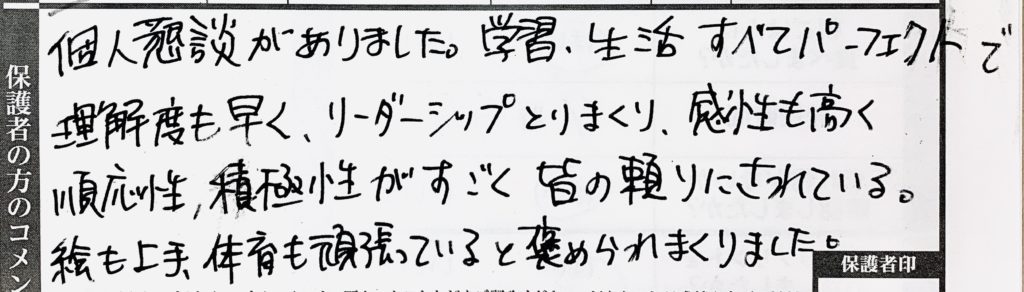 保護者の方のコメン
個人懇談がありました。学習、生活 すべてパーフェクトで
理解度も早く、リーダーシップとりまくり、感性も高く
順応性,積極性がすごく 皆の頼りにされている。
絵も上手、体育も頑張っていると褒められまくりました。
保護者印